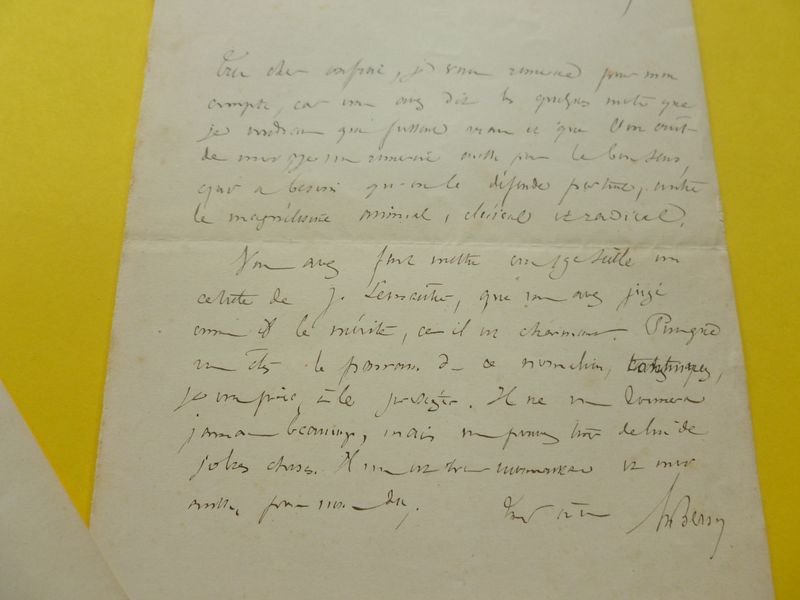 Très cher confrère, je vous remercie pour mon
compte, car vous avez dit les quelques mots que
je voudrais qui fussent vrais et que l'on crût
de moi, je vous remercie aussi pour le bon sens,
qui a besoin qu'on le défende partout, contre
le magnétisme animal, clérical et radical.
Vous avez fait mettre en un
article de J. Lemaître, que vous avez jugé
comme il le mérite, car il est charmant. Puisque
vous êtes le parrain de ce
je vous prie, de le protéger. Il ne vous donnera
jamais beaucoup, mais vous pouvez tirer de lui de
jolies choses. Il vous est très reconnaissant et moi
aussi, pour vous
Tout à vous Bersot